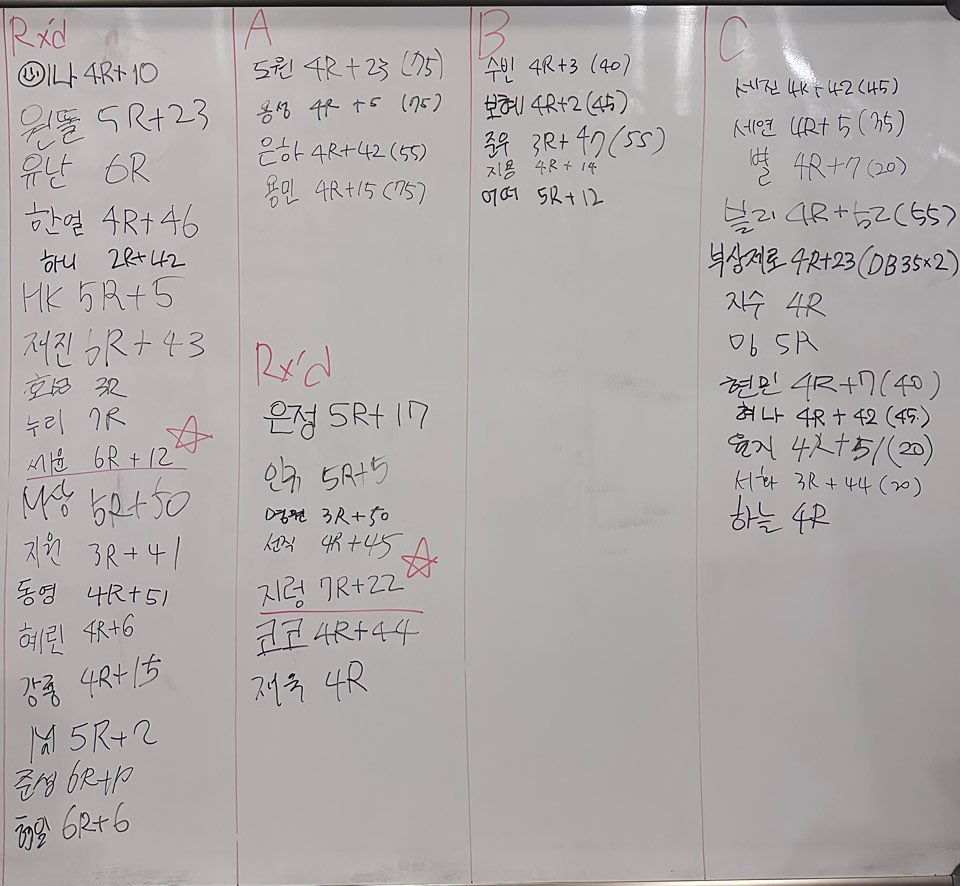 Rx'd
이나 4R+10
원똘 5R+23
유난 6R
한열 4R+46
하니 2R+42
HK 5R+5
재진 6R+43
3R
누리 7R
세윤 6R+12
마상 5R+50
지원 3R+41
동영 4R+51
혜린 4R+6
강홍 4R+15
5R+2
준성 6R+10
형일 6R+6
A
5원 4R+23 (75)
용성 4R+5 (75)
은하 4R+42 (55)
용민 4R+15 (75)
Rx'd
은정 5R+17
인규 5R+5
영현 3R+50
선직 4R+45
지렁 7R+22
코코 4R+44
재욱 4R
B
수빈 4R+3 (40)
보혜 4R+2 (45)
준우 3R+47 (55)
지용 4R+14
어떠 5R+12
C
세진 4R+42 (45)
세연 4R+5 (35)
별 4R+7 (20)
블리 4R+52 (55)
부상제로 4R+23 (DB35×2)
지수 4R
밍 5R
현민 4R+7 (40)
혀나 4R+42 (45)
윤지 4R+51 (20)
서화 3R+44 (20)
하늘 4R